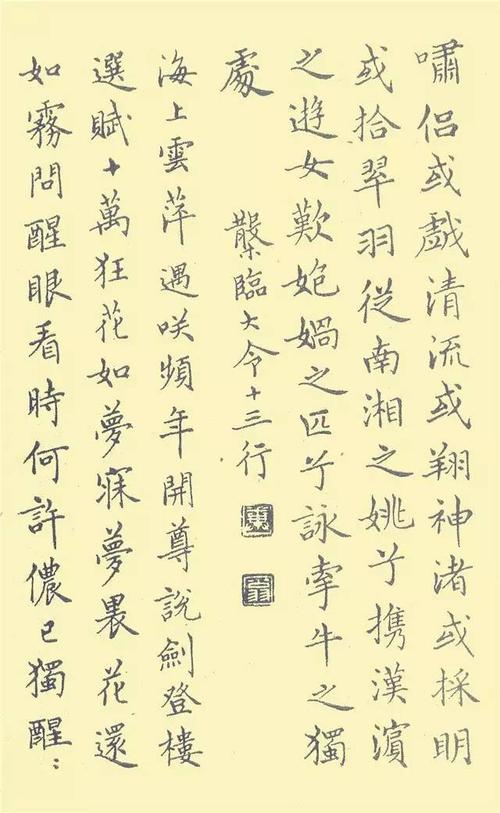 嘯侣或戲清流或翔神渚或採明
或拾翠羽從南湘之姚兮携漢濱
之遊女歎媧之匹兮詠牽牛之獨
處
臨大令十三行
海上雲萍遇咲頻年開尊說劍登樓
選賦十萬狂花如夢寐夢裏花還
如霧問醒眼看時何許儂已獨醒：